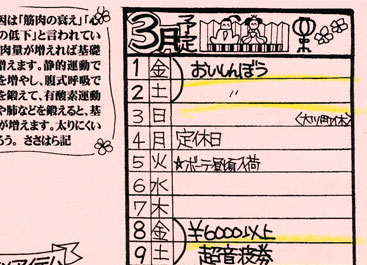 因は「筋肉の衰え」「心
の低下」と言われてい
肉量が増えれば基礎
増えます。静的運動で
を増やし、腹式呼吸で
を鍛えて、有酸素運動
や肺などを鍛えると、基
が増えます。太りにくい
ろう。 ささはら記
3月 予定
1 金 おいしんぼう
2 土 〃
3 日
4 月 定休日
5 火 ☆ボーテ昼頃入荷
6 水
7 木
8 金 ¥6000以上
9 土 超音波券